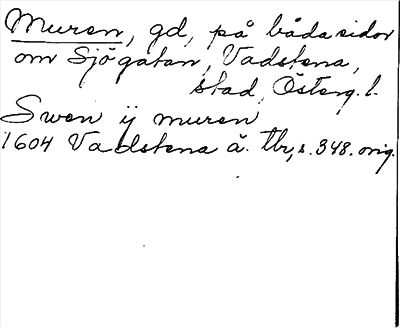 Muren, gd, på båda sidor
om Sjögatan, Vadstena,
stad, Österg. l.
Swen ij muren
1604 Vadstena å. tbr, s. 348. orig.